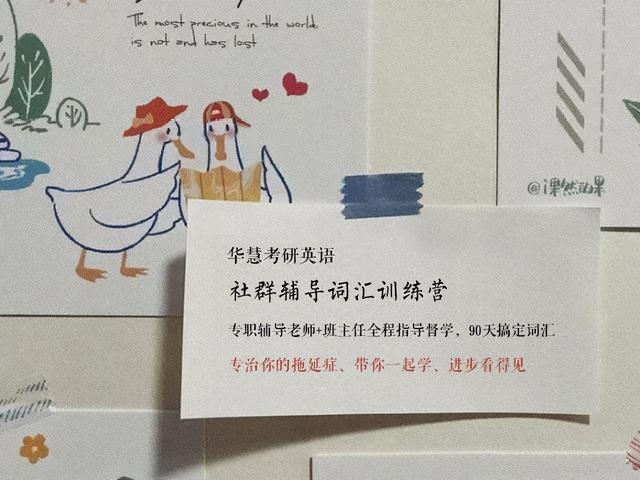 The most precious in the world.
is not and has lost
@i课然的果
华慧考研英语
社群辅导词汇训练营
专职辅导老师+班主任全程指导督学，90天搞定词汇
专治你的拖延症、带你一起学、进步看得见